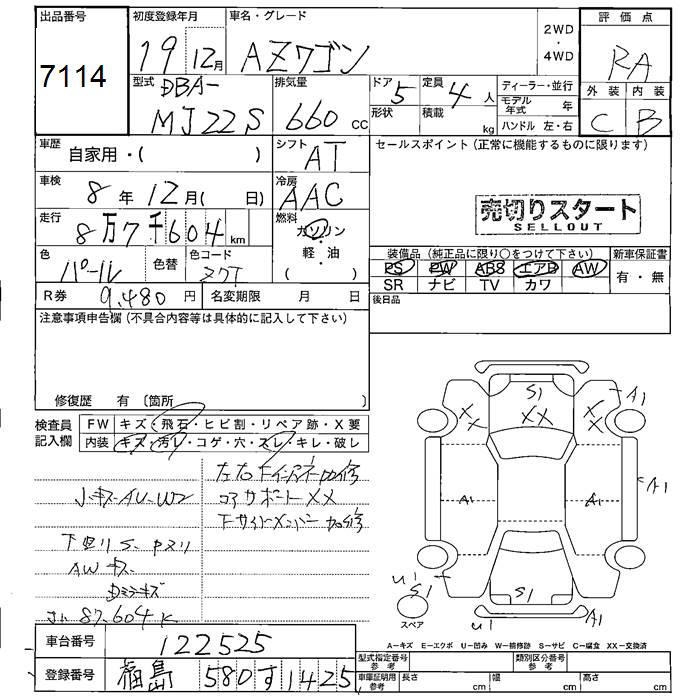 出品番号
7114
初度登録年月
19 12月
車名・グレード
AZワゴン
2WD
・
4WD
評価点
RA
型式
DBA-
MJ22S
排気量
660 cc
ドア 5
形状
定員 4 人
積載 kg
ディーラー・並行
モデル年式 年
ハンドル 左・右
外装 内装
C B
車歴
自家用・( )
シフト
AT
セールスポイント (正常に機能するものに限ります)
車検
8年 12月( 日)
冷房
AAC
売切りスタート
SELLOUT
走行
8万7千604 km
燃料
ガソリン
・
軽・油
( )
色
パール
色替
色コード
ZQT
装備品 (純正品に限り○をつけて下さい)
新車保証書
PS PW ABS エアB AW
有・無
SR ナビ TV カワ
R券 9,480 円
名変期限 月 日
後日品
注意事項申告欄 (不具合内容等は具体的に記入して下さい)
修復歴 有 〔箇所 〕
検査員
記入欄
FW キズ・飛石・ヒビ割・リペア跡・X要
内装 キズ・汚レ・コゲ・穴・スレ・キレ・破レ
左右Fインナー加修
コアサポートXX
Fサイドメンバー加修
AWキズ
Dミラーキズ
87,604K
S1
XX
XX
XX
A1
A1
A1
A1
U1
S1
S1
U1
A1
スペア
A-キズ E-エクボ U-凹み W-補修跡 S-サビ C-腐食 XX-交換済
車台番号
122525
登録番号
福島 580 す 1425
型式指定番号
参考
類別区分番号
参考
車庫証明用
参考
長さ cm
幅 cm
高さ cm